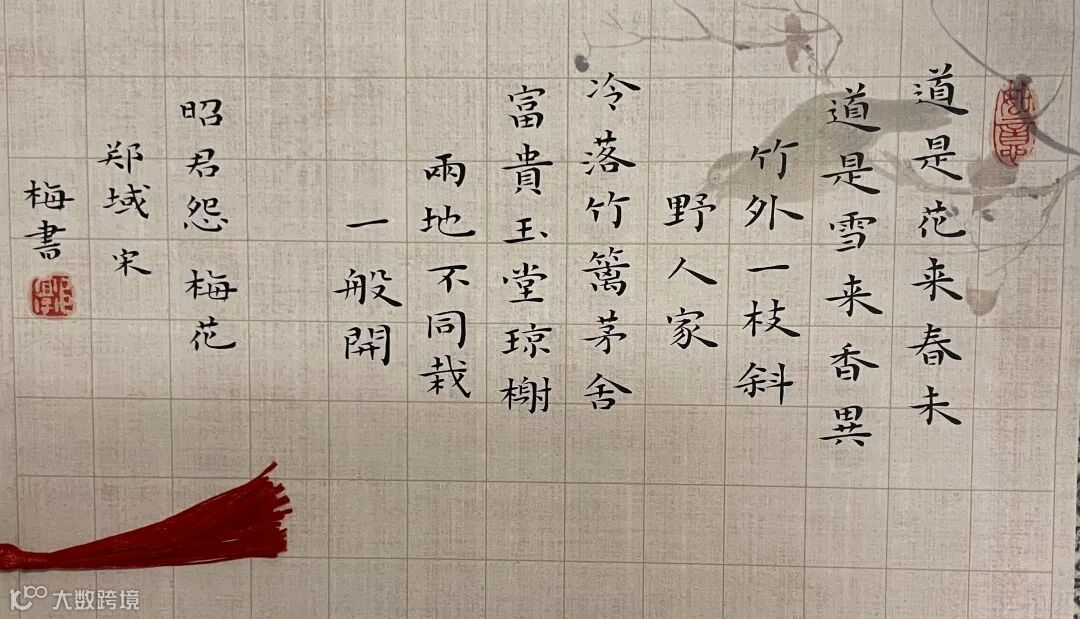 道是花来春未
道是雪来香異
竹外一枝斜
野人家
冷落竹篱茅舍
富貴玉堂琼榭
兩地不同栽
一般開
昭君怨 梅花
郑域 宋
梅書
大数跨境